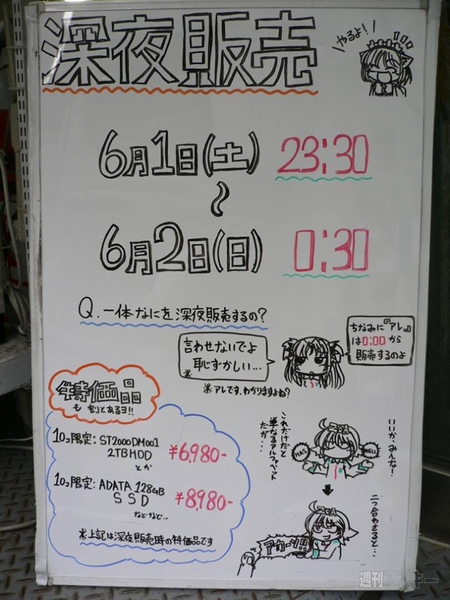 深夜販売
やるよ!
6月1日(土) 23:30
〜
6月2日(日) 0:30
Q.一体なにを深夜販売するの?
言わせないでよ
恥ずかしい…
ちなみに『アレ』
は0:00から
販売するのよ
※アレです、わかりますよね?
特価品
も 有るヨ!!
10コ限定: ST2000DM001
2TBHDD
とか
¥6,980-
10コ限定: ADATA 128GB
SSD
¥8,980-
などなど…
※上記は深夜販売時の特価品です
いいか、みんな!
HAS
WELL
これだけだと
単なるアルファベット
だが…
二つ合わせると…
週刊アスキー